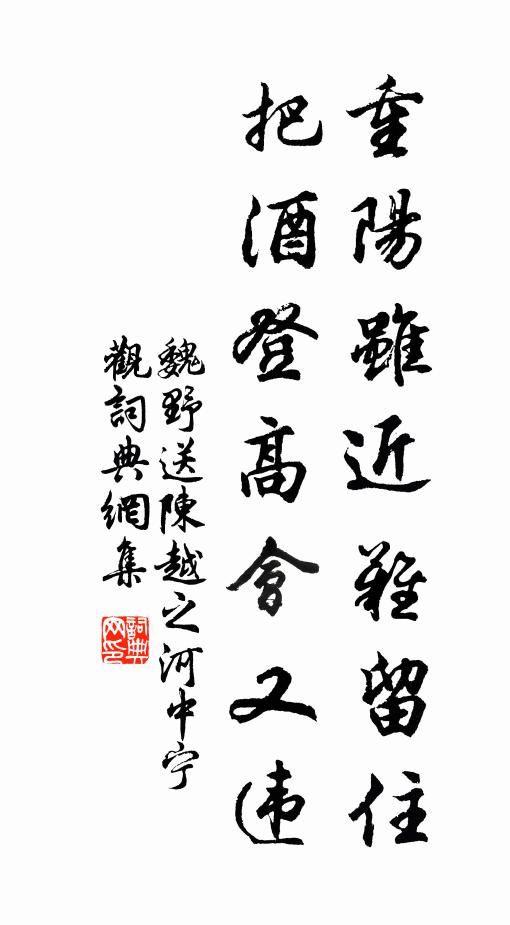 重陽雖近難留住
把酒登高會又违
魏野送陳越之河中宁
觀詞典網集
詞典网印